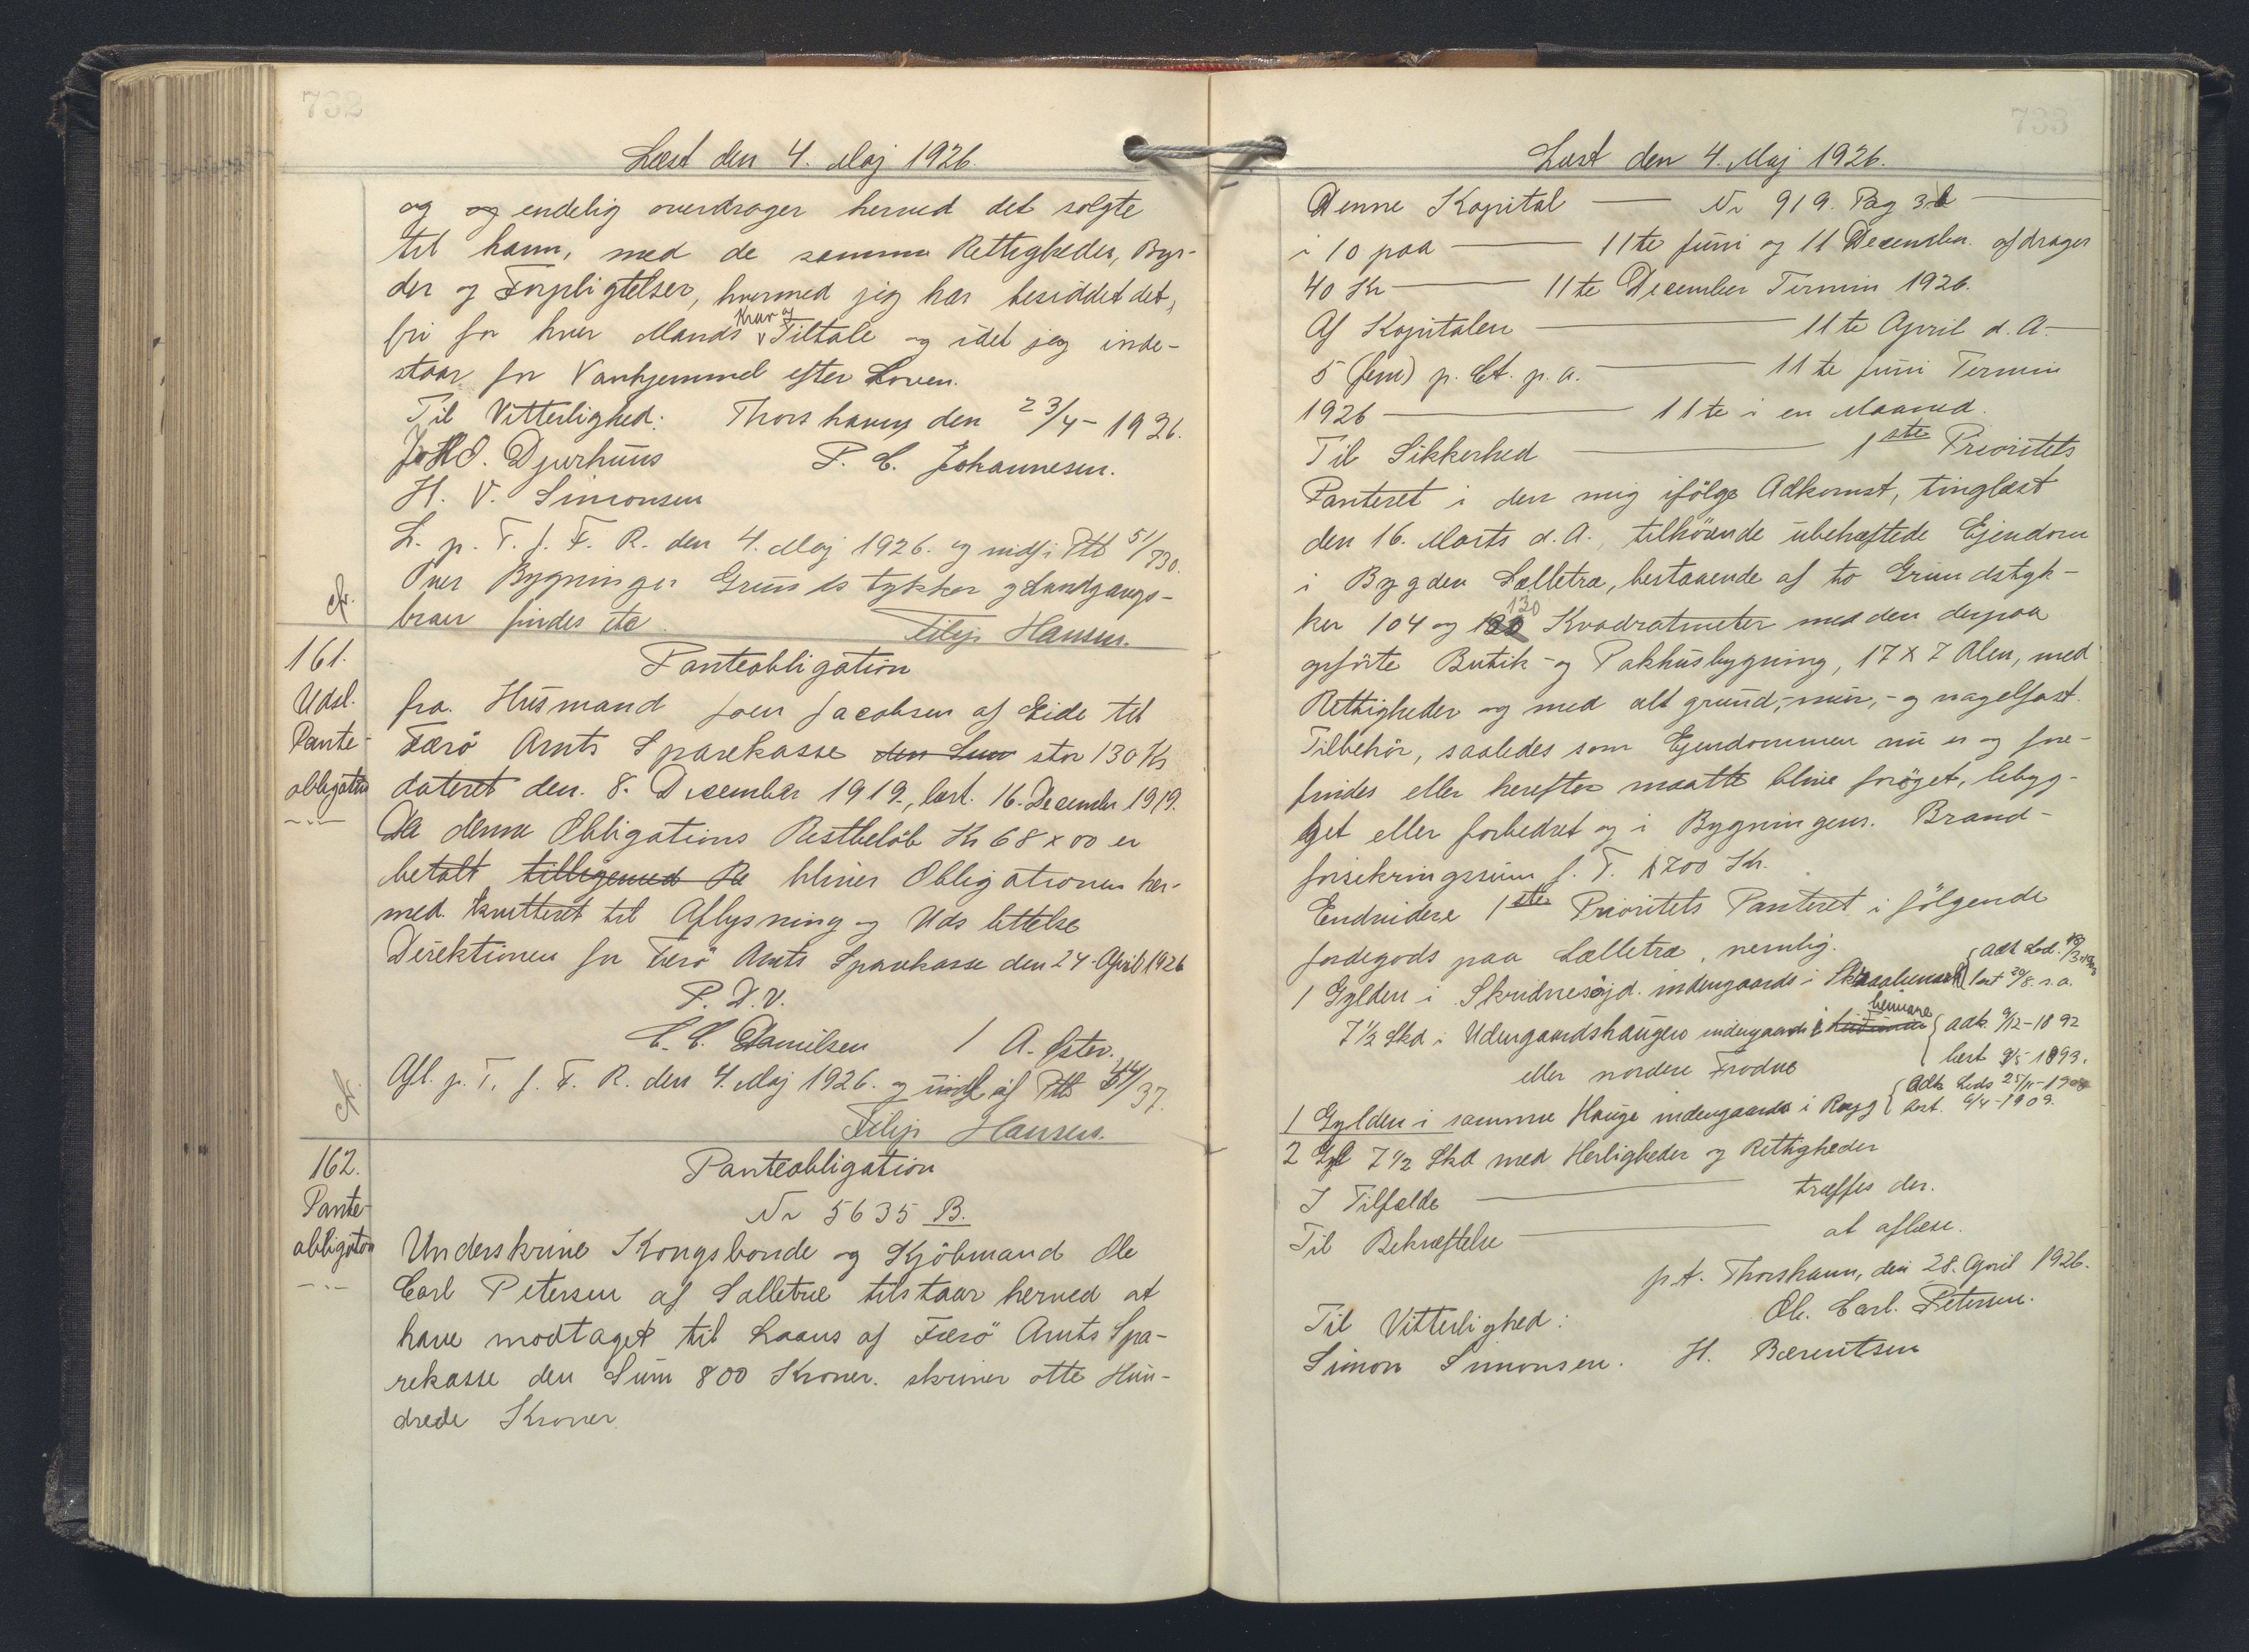 732
Læst den 4. Maj 1926.
og og endelig overdrager herved det solgte
til ham, med de samme Rettigheder, Byr-
der og Forpligtelser, hvormed jeg har besiddet det,
fri for hver Mands Krav og Tiltale og idet jeg inde-
staar for Vanhjemmel efter Loven.
Til Vitterlighed: Thorshavn den 23/4 - 1926.
Djurhuus P. C. Johannesen.
H. V. Simonsen
L. p. T. f. F. R. den 4. Maj 1926. og indf i Ptb 51/730.
Over Bygninger Grundstykker og Landgangs-
broer findes
Filip Hansen.
161.
Udsl.
Pante-
obligation
Panteobligation
fra Husmand Joen Jacobsen af Eide til
Færö Amts Sparekasse den Sum stor 130 Kr
dateret den 8. December 1919., læst. 16. December 1919.
Da denne Obligations Restbelöb Kr 68 x 00 er
betalt tilligemed Re bliver Obligationen her-
med kvitteret til Aflysning og Udslettelse
Direktionen for Færö Amts Sparekasse den 24. April 1926
P. D. V.
C. C. Danielsen / A.
Afl. p. T. f. F. R. den 4. Maj 1926. og udsl af Ptb 44/37.
Filip Hansen.
162.
Pante-
obligation
Panteobligation
Nr 5635 B.
Underskrevne Kongsbonde og Kjöbmand Ole
Carl Petersen af Selletræ tilstaar herved at
have modtaget til Laans af Færö Amts Spa-
rekasse den Sum 800 Kroner. skriver otte Hun-
drede Kroner.
733
Læst den 4. Maj 1926.
Denne Kapital — Nr 919. Pag 3 —
i 10 paa — 11te Juni og 11 December. afdrager
40 Kr — 11te December Termin 1926.
Af Kapitalen — 11te April d. A. —
5 (fem) p. Ct. p. a. — 11te Juni Termin
1926 — 11te i en Maaned.
Til Sikkerhed — 1ste Prioritets
Panteret i den mig ifölge Adkomst, tinglæst
den 16. Marts d. A., tilhörende ubehæftede Ejendom
i Bygden Selletræ, bestaaende af to Grundstyk-
ker 104 og 130 Kvadratmeter med den derpaa
opförte Butik- og Pakhusbygning, 17 x 7 Alen, med
Rettigheder og med alt grund-, mur,- og nagelfast.
Tilbehör, saaledes som Ejendommen nu er og fore-
findes eller herefter maatte blive foröget, bebyg-
get eller forbedret og i Bygningens. Brand-
forsikringssum f. T. 1700 Kr.
Endvidere 1ste Prioritets Panteret i fölgende
Jordegods paa Selletræ, nemlig.
1 Gylden i indengaards i
7½ Skd i Udengaardshaugen indengaards i { adk. 9/12 - 1892
eller nordere { læst 9/5 - 1893.
1 Gylden i samme Hauge indengaards i { Adk Seds 25/11 - 19
læst. 6/4 - 1909.
2 Gyl 7½ Skd med Herligheder og Rettigheder
I Tilfælde — træffes der.
Til Bekræftelse — at aflæse.
p.t. Thorshavn, den 28. April 1926.
Ole Carl Petersen.
Til Vitterlighed:
Simon Simonsen. H. Bærentsen